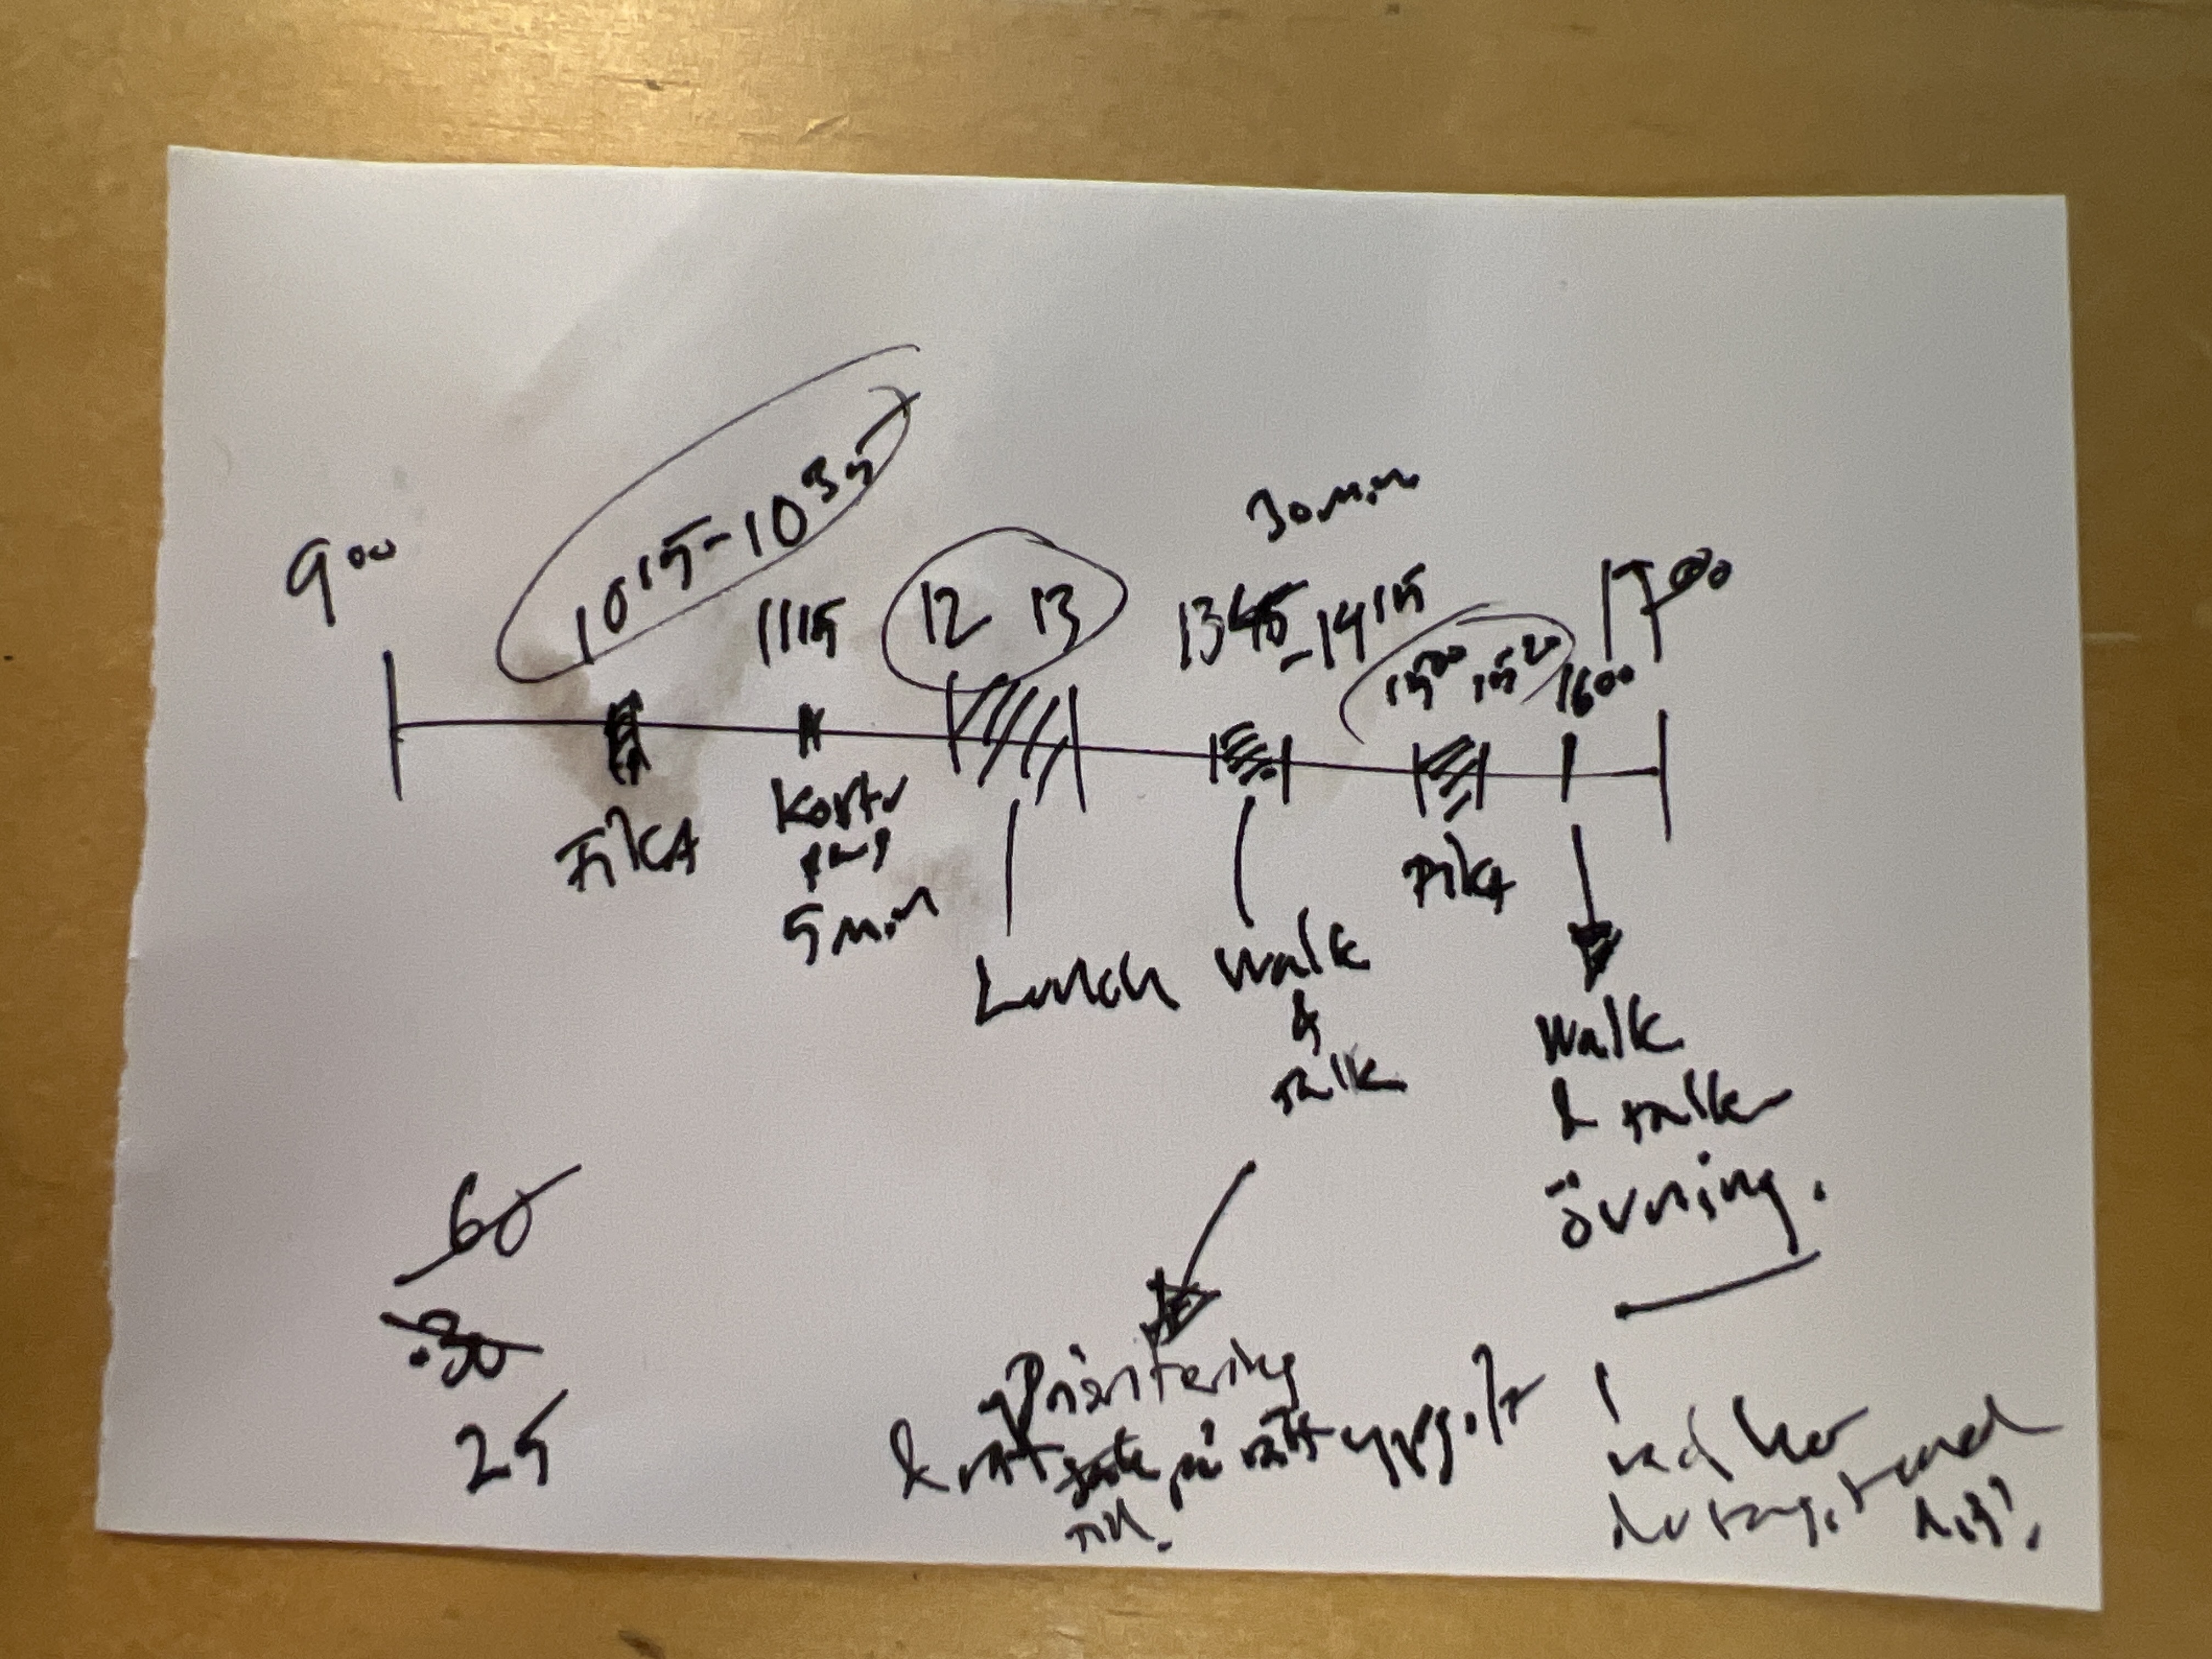 30 min
9⁰⁰
10¹⁵-10³⁵
11¹⁵
12 13
13⁴⁵-14¹⁵
15⁰⁰ 15²⁰
16⁰⁰
17⁰⁰
FIKA
Kort
paus
5 min
Lunch
Walk
&
talk
FIKA
Walk
& talk
övning.
60
30
25
Prioritering
& rätt på rätt uppgift
Vad har
du tagit med
dig?